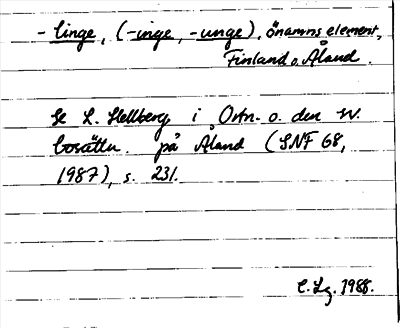 -linge, (-inge, -unge), önamns element,
Finland o. Åland.
Se L. Hellberg i Ortn. o. den sv.
bosättn. på Åland (SNF 68,
1987), s. 231.
1988.